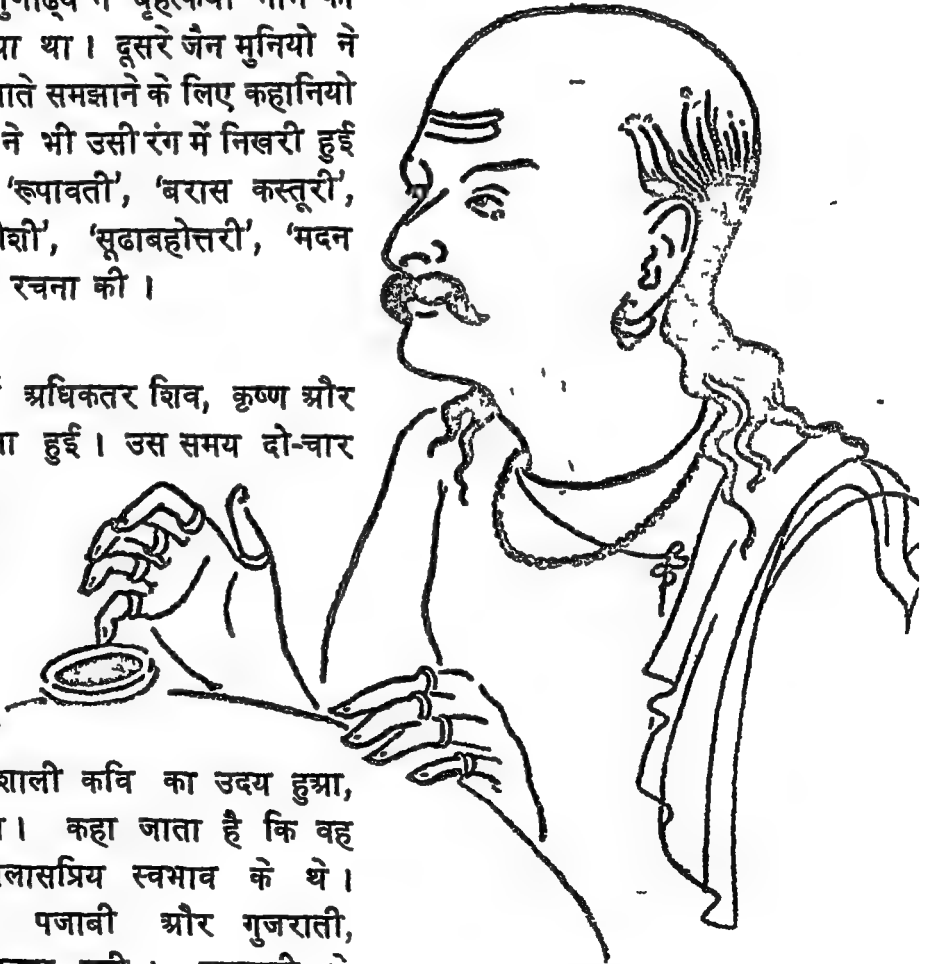 ने बृहत्कथा नाम की
था । दूसरे जैन मुनियो ने
समझाने के लिए कहानियो
ने भी उसी रंग में निखरी हुई
‘रूपावती’, ‘बरास कस्तूरी’,
‘सूढाबहोत्तरी’, ‘मदन
रचना की ।
अधिकतर शिव, कृष्ण और
हुई । उस समय दो-चार
कवि का उदय हुआ,
। कहा जाता है कि वह
स्वभाव के थे ।
पजाबी और गुजराती,